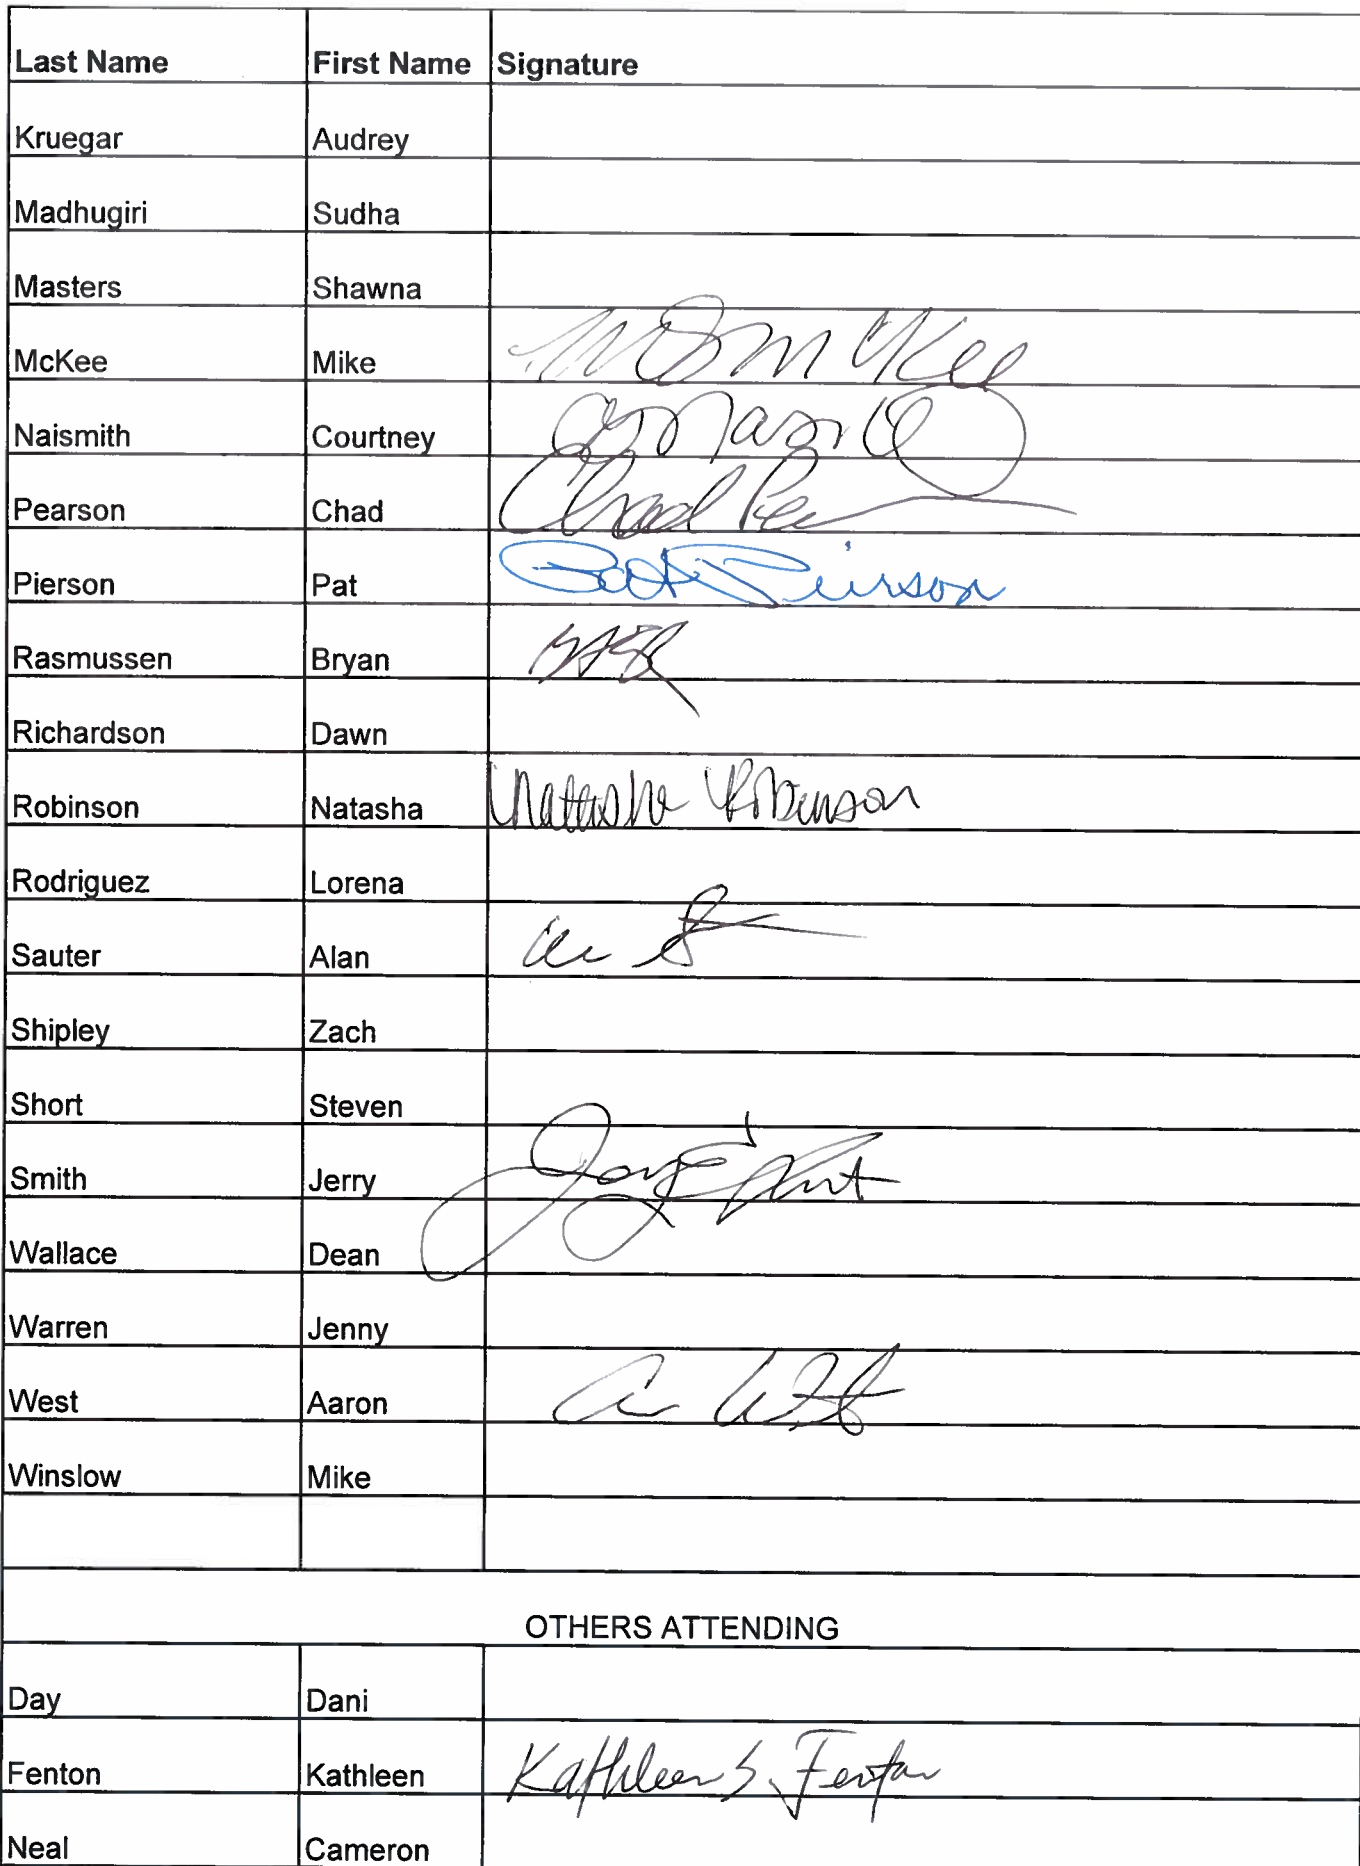 Last Name First Name Signature
Kruegar Audrey
Madhugiri Sudha
Masters Shawna
McKee Mike McKee
Naismith Courtney
Pearson Chad Chad
Pierson Pat Pat Pierson
Rasmussen Bryan
Richardson Dawn
Robinson Natasha Natasha Robinson
Rodriguez Lorena
Sauter Alan
Shipley Zach
Short Steven
Smith Jerry
Wallace Dean
Warren Jenny
West Aaron
Winslow Mike
OTHERS ATTENDING
Day Dani
Fenton Kathleen Kathleen S. Fenton
Neal Cameron